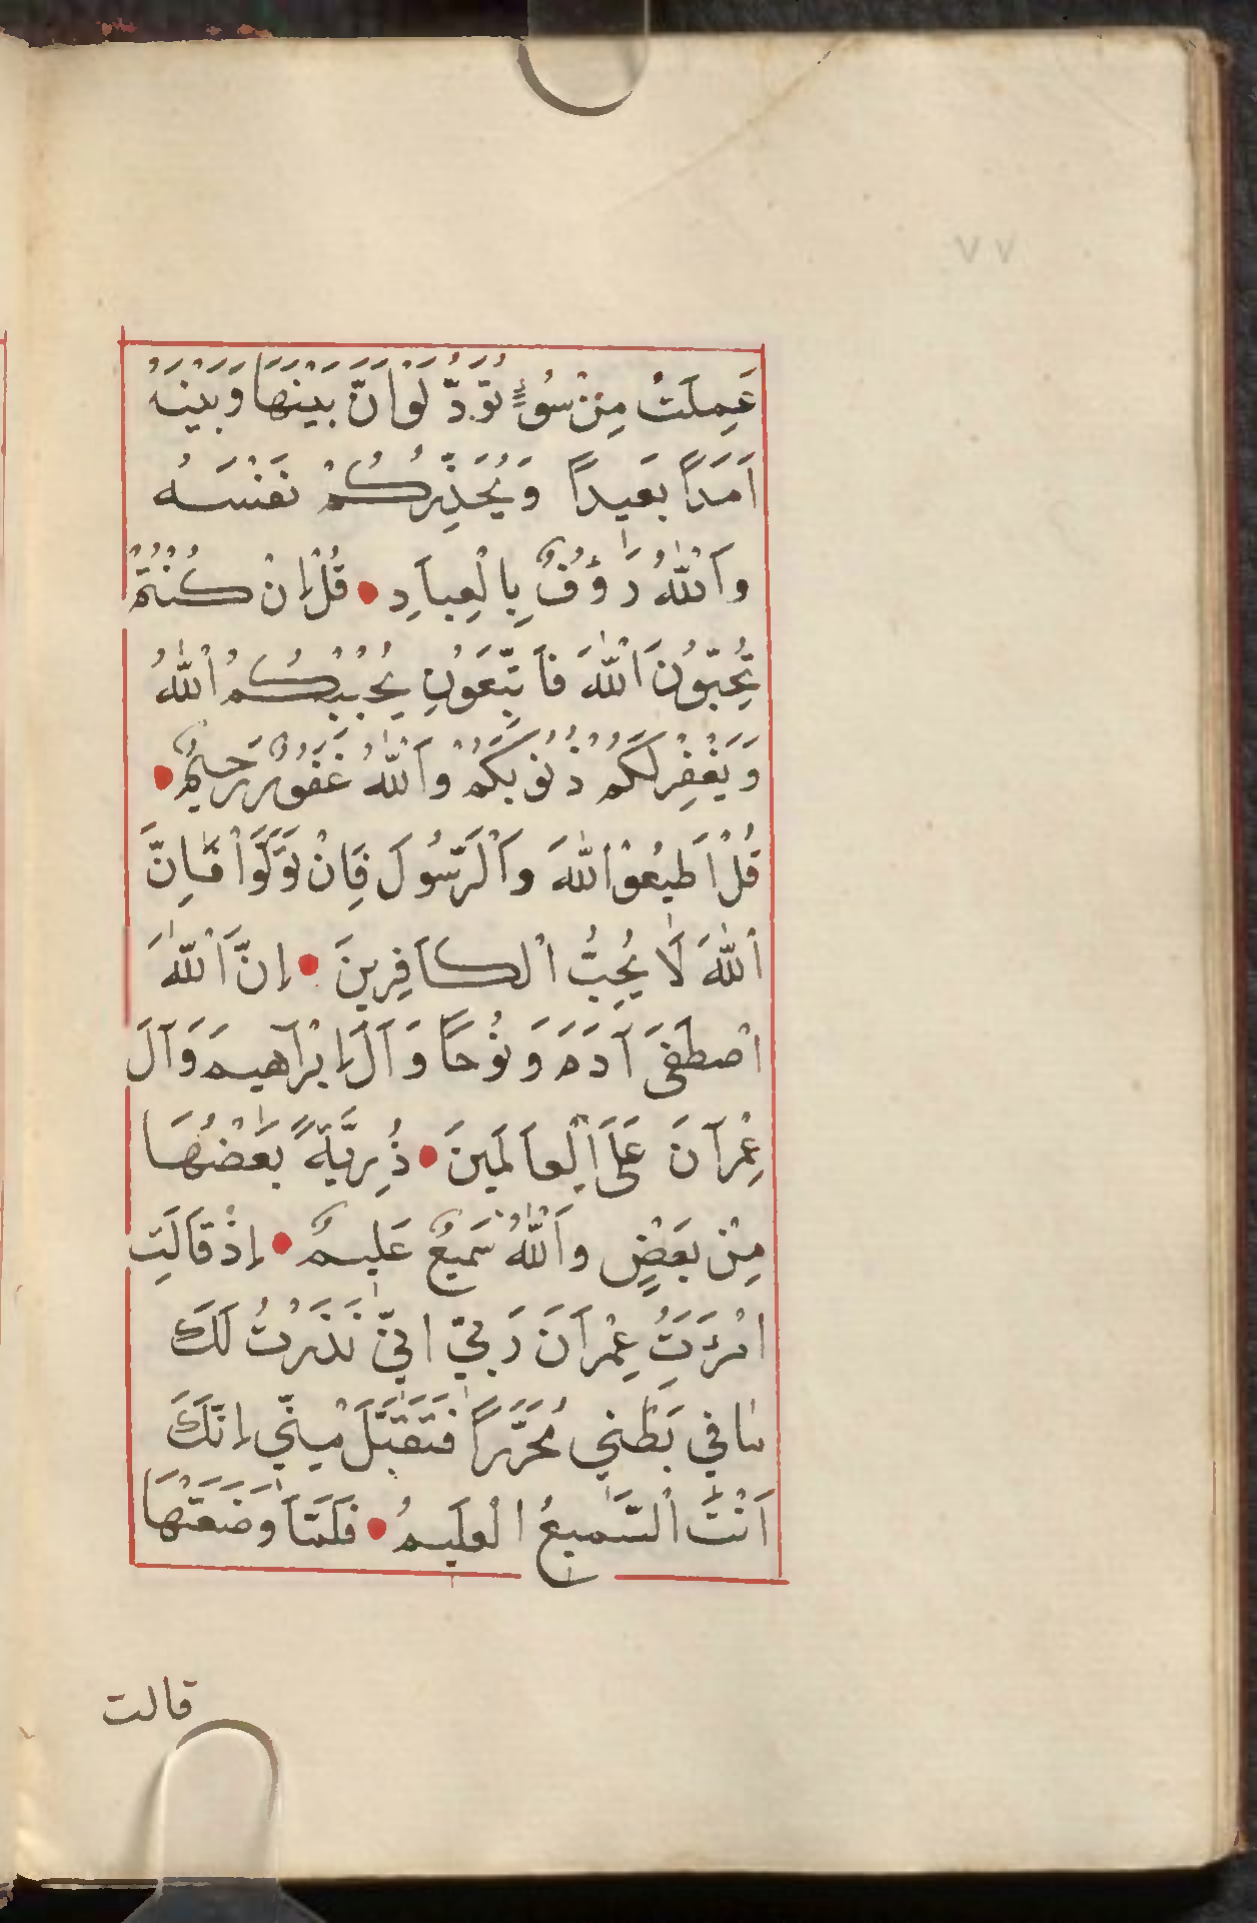 ٧٧
عَمِلَتْ مِنْ سُوءٍ تَوَدُّ لَوْ اَنَّ بَيْنَهَا وَبَيْنَهُ
اَمَدًا بَعِيدًا وَيُحَذِّرُكُمْ نَفْسَهُ
وَاَللّٰهُ رَؤُفٌ بِالْعِبَادِ • قُلْ إِنْ كُنْتُمْ
تُحِبُّونَ اَللّٰهَ فَاَتَّبِعُونِ يُحْبِبْكُمُ اَللّٰهُ
وَيَغْفِرْ لَكُمْ ذُنُوبَكُمْ وَاَللّٰهُ غَفُورٌ رَحِيمٌ •
قُلْ اَطِيعُوْا اَللّٰهَ وَاَلرَّسُولَ فَاِنْ تَوَلَّوْا فَاِنَّ
اَللّٰهَ لَا يُحِبُّ الْكَافِرِينَ • إِنَّ اَللّٰهَ
اصْطَفَى آدَمَ وَنُوحًا وَآلَ إِبْرَاهِيمَ وَآلَ
عِمْرَانَ عَلَى اَلْعَالَمِينَ • ذُرِّيَّةً بَعْضُهَا
مِنْ بَعْضٍ وَاَللّٰهُ سَمِيعٌ عَلِيمٌ • إِذْ قَالَتِ
امْرَئَتُ عِمْرَانَ رَبِّ اِنِّي نَذَرْتُ لَكَ
مَا فِي بَطْنِي مُحَرَّرًا فَتَقَبَّلْ مِنِّي إِنَّكَ
اَنْتَ اَلسَّمِيعُ الْعَلِيمُ • فَلَمَّا وَضَعَتْهَا
قالت